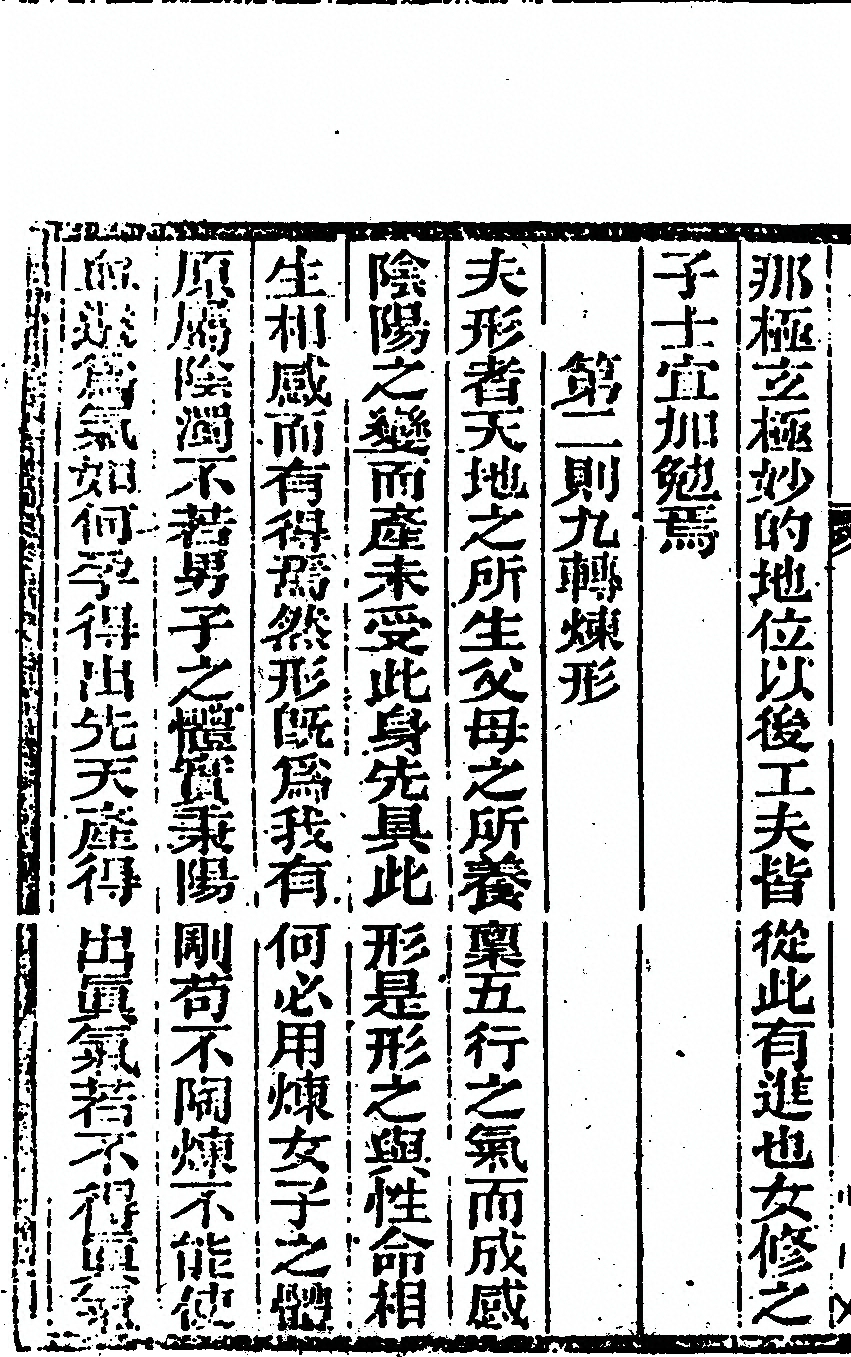 那極玄極妙的地位以後工夫皆從此有進也女修之
子士宜加勉焉
第二則九轉煉形
夫形者天地之所生父母之所養稟五行之氣而成感
陰陽之變而產未受此身先具此形是形之與性命相
生相感而有得焉然形旣爲我有何必用煉女子之體
原屬陰濁不若男子之體實秉陽剛苟不陶煉不能使
血返爲氣如何孕得出先天產得出眞氣若不得眞氣